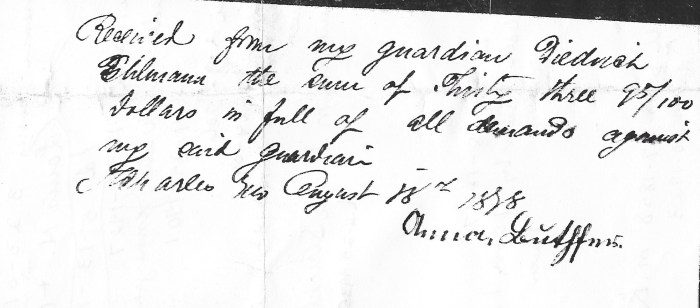 Received from my guardian Diedrich
Ehlmann the sum of Thirty three 95/100
Dollars in full of all demands against
my said guardian
St Charles Mo August 18th 1878
Anna